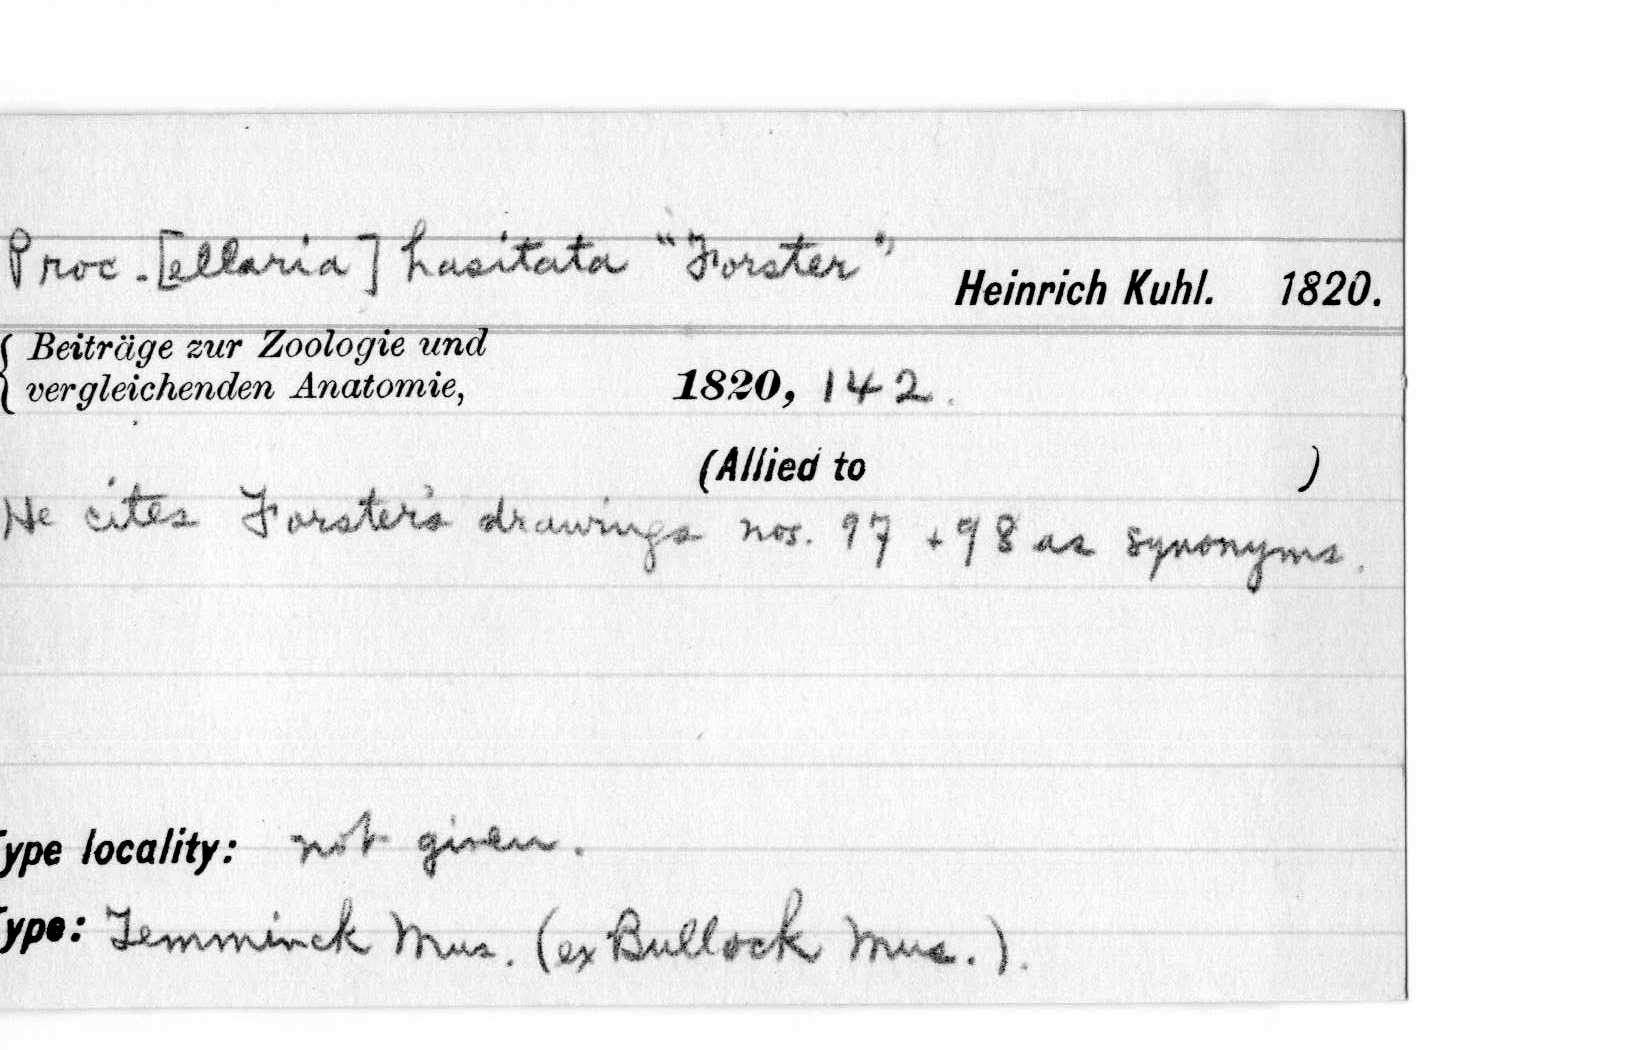 Proc.[ellaria] hasitata "Forster" Heinrich Kuhl. 1820.
Beiträge zur Zoologie und
vergleichenden Anatomie, 1820, 142.
(Allied to )
He cites Forster's drawings nos. 97 + 98 as synonyms.
Type locality: not given.
Type: Temminck Mus. (ex Bullock Mus.).